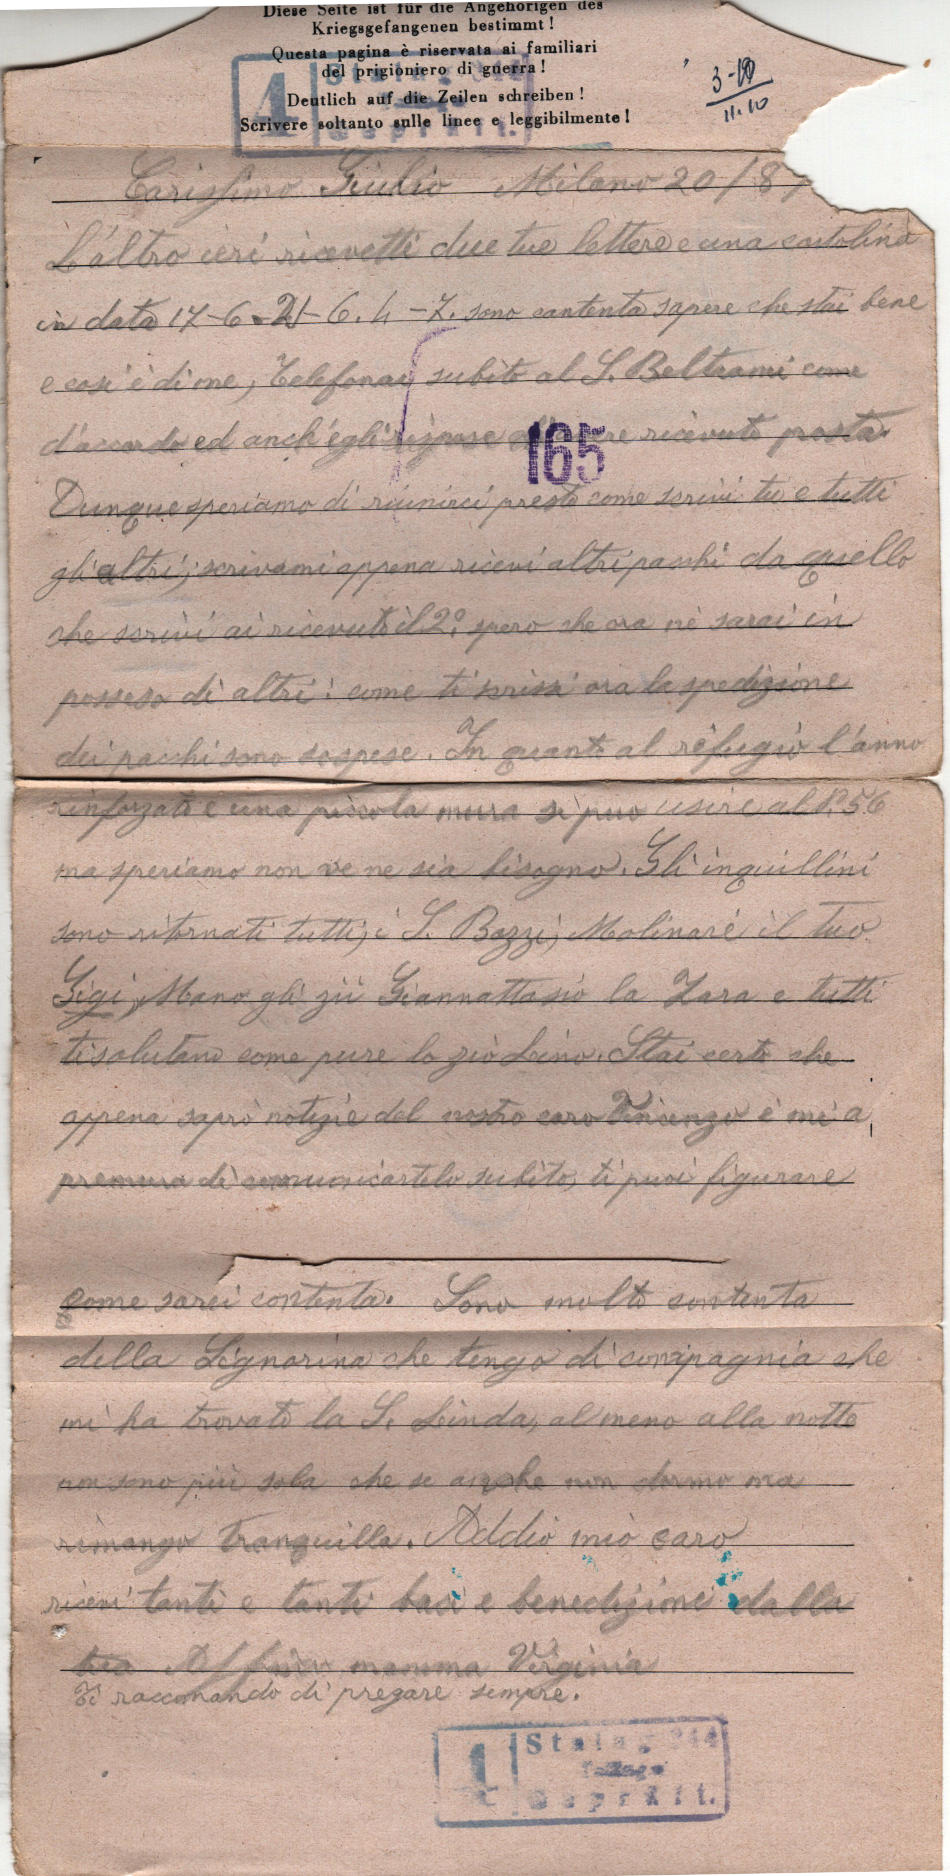 Diese Seite ist für die Angehörigen des
Kriegsgefangenen bestimmt!
Questa pagina è riservata ai familiari
del prigioniero di guerra!
Deutlich auf die Zeilen schreiben!
Scrivere soltanto sulle linee e leggibilmente!
4 Stalag
Geprüft.
11.10
Carissimo Giulio Milano 20/8/
L'altro ieri ricevetti due tue lettere e una cartolina
in data 17-6-21-6. 4-7. sono contenta sapere che stai bene
e cosi è di me, Telefonai subito al S. Beltrami come
d'accordo ed anch'egli rispose avere ricevuto posta.
165
Dunque speriamo di riunirci presto come scrivi tu e tutti
gli altri; scrivami appena ricevi altri pacchi da quello
che scrivi ai ricevuto il 2° spero che ora nè sarai in
posseso di altri: come ti scrissi ora la spedizione
dei pacchi sono sospese. In quanto al refugio l'anno
rinforzato e una piccola mura si puo usire al N. 56
ma speriamo non ve ne sia bisogno. Gli inquillini
sono ritornati tutti, i S. Bozzi, Molinari il tuo
Gigi, Mano gli zii Giannattasio la Zara e tutti
ti salutano come pure lo zio Lino. Stai certo che
appena saprò notizie del nostro caro Vincenzo è mia
premura di comunicartelo subito, ti puoi figurare
come sarei contenta. Sono molto contenta
della Signorina che tengo di compagnia che
mi ha trovato la S. Linda, al meno alla notte
non sono più sola che se anche non dormo ma
rimango tranquilla. Addio mio caro
ricevi tanti e tanti baci e benedizioni dalla
tua Aff mamma Virginia
Ti raccomando di pregare sempre.
Stalag 344
Geprüft.